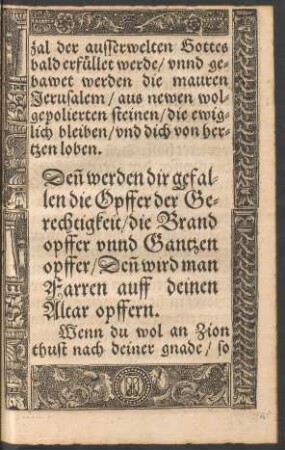 zal der ausserwelten Gottes
bald erfüllet werde/ vnnd ge-
bawet werden die mauren
Jerusalem/ aus newen wol-
gepolierten steinen/ die ewig-
lich bleiben/ vnd dich von her-
tzen loben.
Deñ werden dir gefal-
len die Opffer der Ge-
rechtigkeit/ die Brand
opffer vnnd Gantzen
opffer/ Deñ wird man
Farren auff deinen
Altar opffern.
Wenn du wol an Zion
thust nach deiner gnade/ so